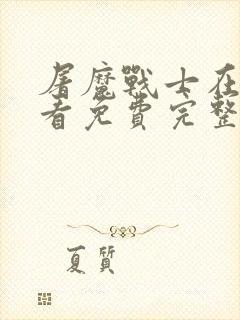 屠魔戰士在
看免費完整
夏質